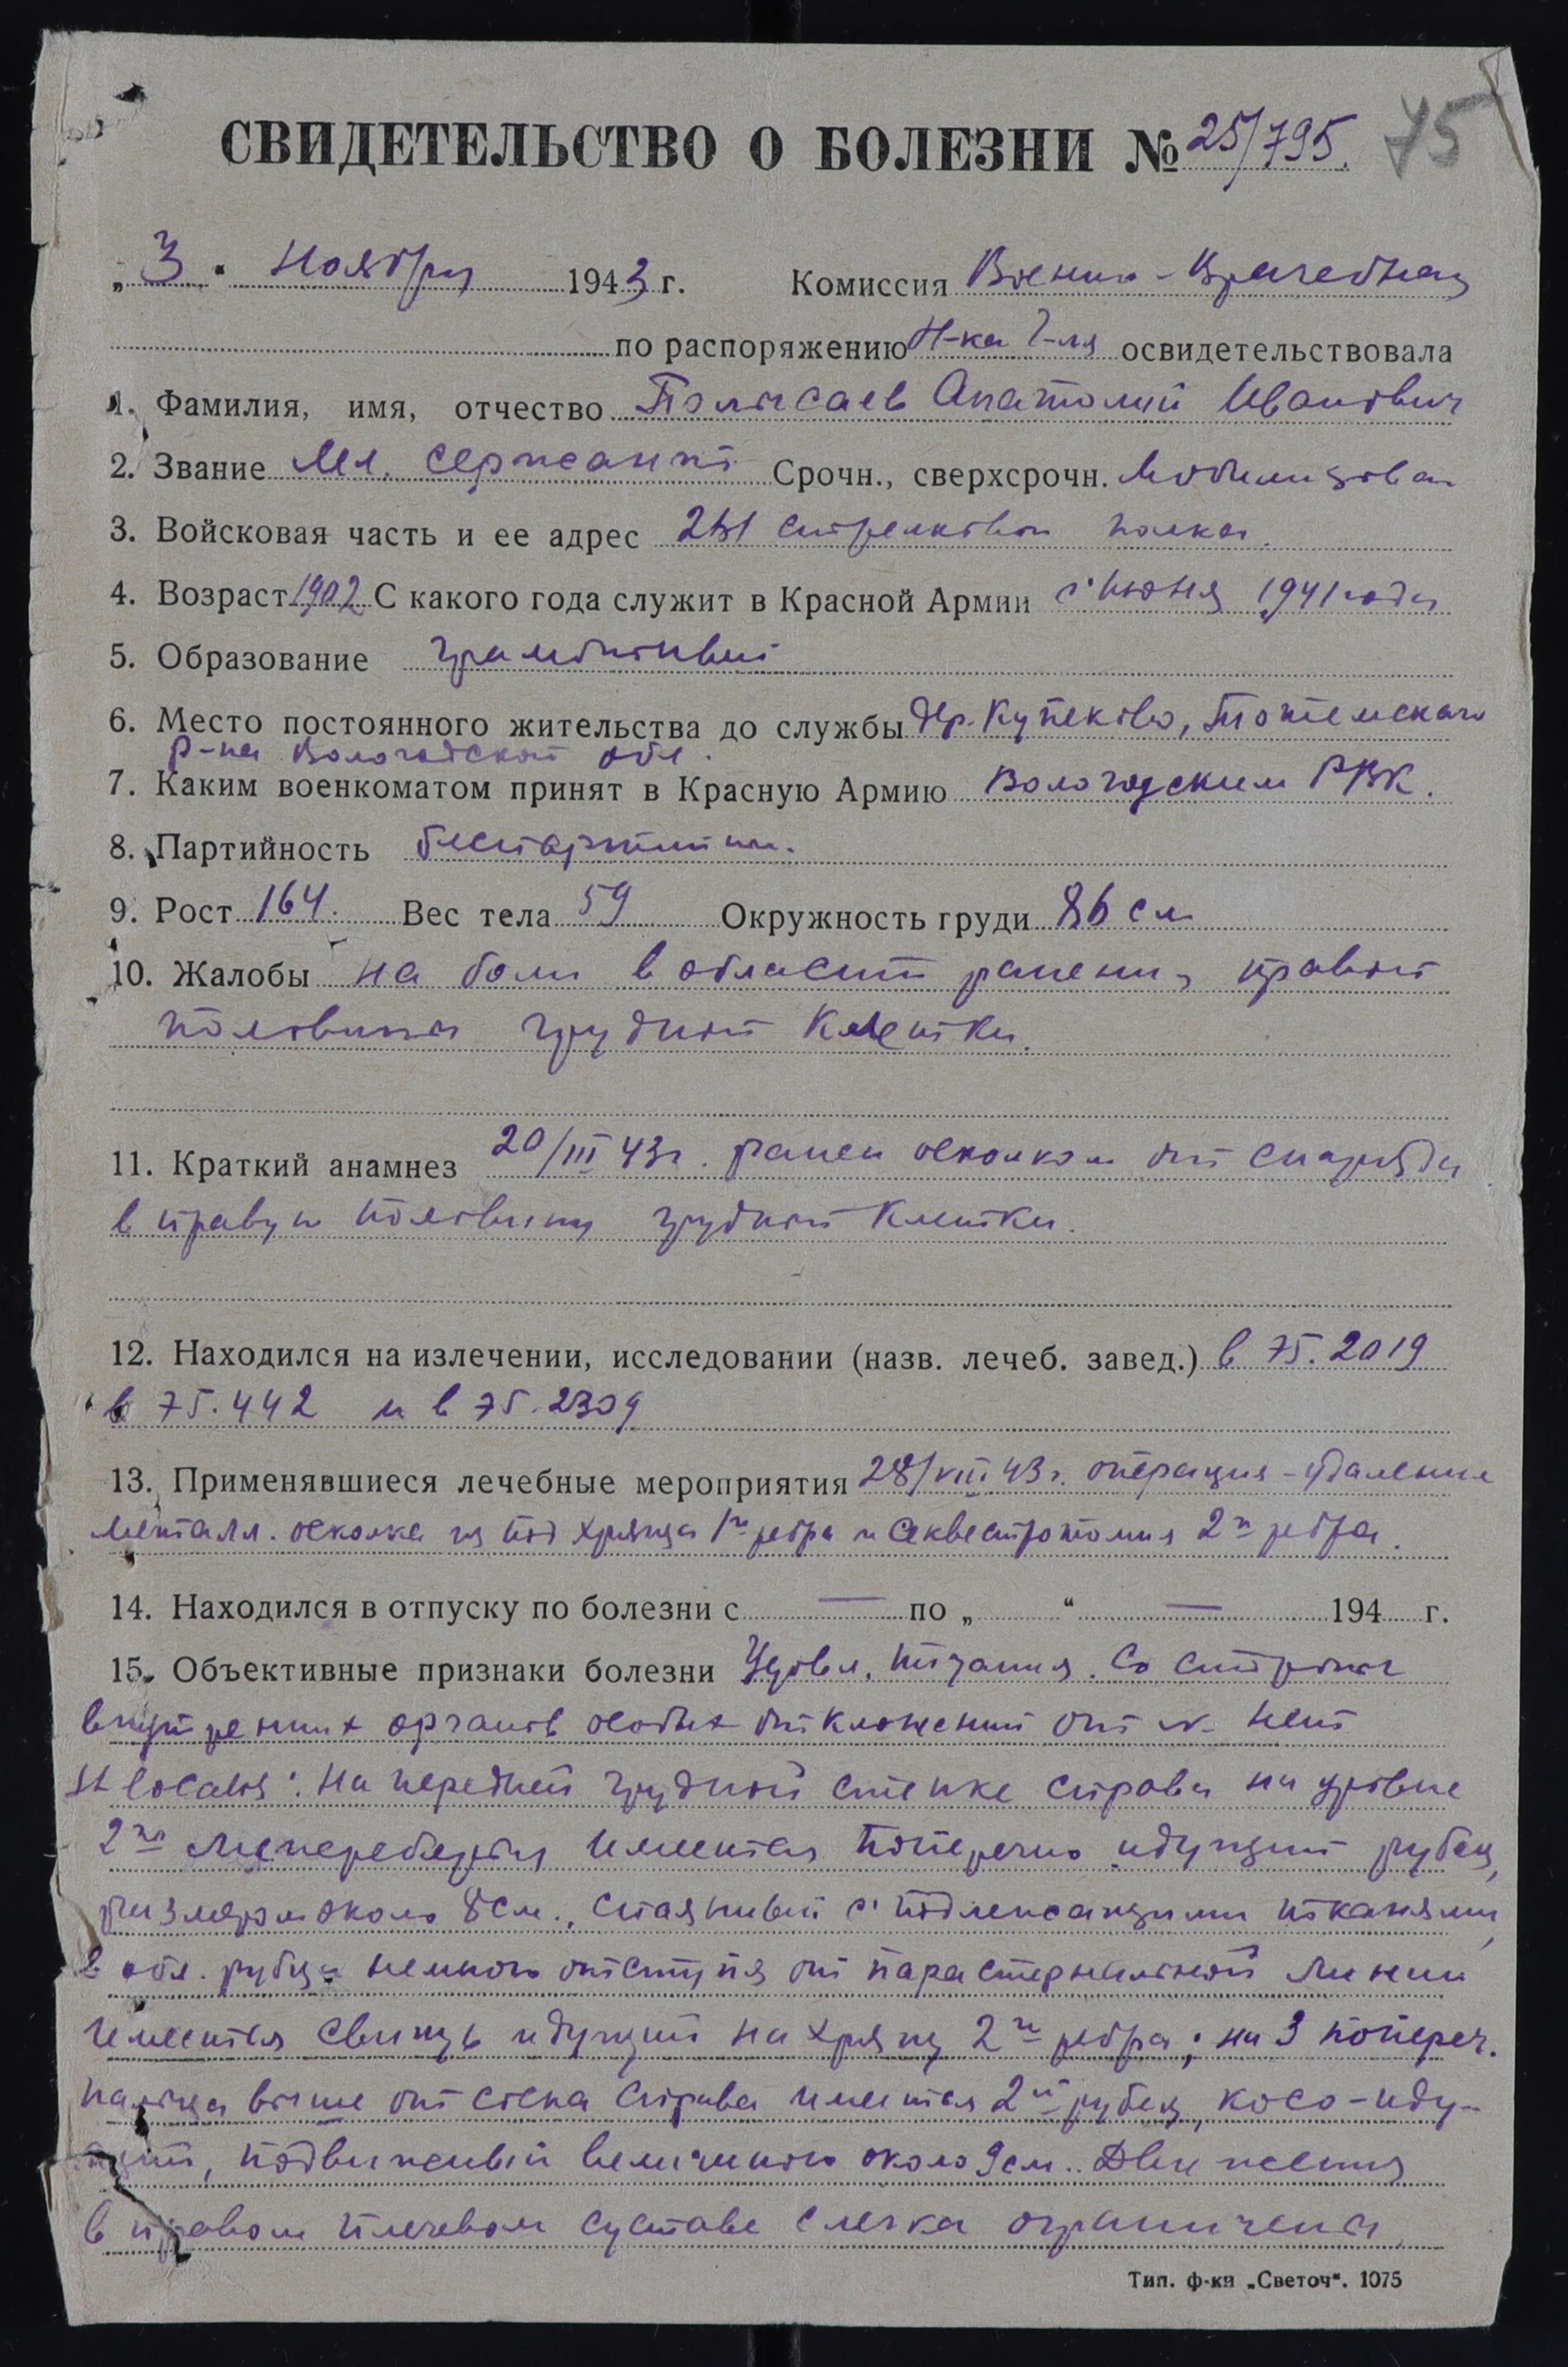 СВИДЕТЕЛЬСТВО О БОЛЕЗНИ № 25/795. 75
„3" ноября 1943 г. Комиссия Военно-Врачебная
по распоряжению Н-ка Г-ля освидетельствовала
1. Фамилия, имя, отчество Полысаев Анатолий Иванович
2. Звание Мл. сержант Срочн., сверхсрочн. Мобилизован
3. Войсковая часть и ее адрес стрелковой полка.
4. Возраст 1902 С какого года служит в Красной Армии с июня 1941 года
5. Образование грамотный
6. Место постоянного жительства до службы дер. Купеково, Тотемского
р-на Вологодской обл.
7. Каким военкоматом принят в Красную Армию Вологодским РВК.
8. Партийность беспартийн.
9. Рост 164. Вес тела 59 Окружность груди 86 см
10. Жалобы на боли в области ранения правой
половины грудной клетки.
11. Краткий анамнез 20/III 43 г. ранен осколком от снаряда
в правую половину грудной клетки.
12. Находился на излечении, исследовании (назв. лечеб. завед.) в ЭГ. 2019
в ЭГ. 442 и в ЭГ. 2309
13. Применявшиеся лечебные мероприятия 28/VIII 43 г. операция - удаление
металл. осколка из под хряща 1го ребра и секвестротомия 2го ребра.
14. Находился в отпуску по болезни с — по „ " — 194 г.
15. Объективные признаки болезни Удовл. питания. Со стороны
внутренних органов особых отклонений от N- нет
St localis: На передней грудной стенке справа на уровне
2го межреберья имеется поперечно идущий рубец,
размером около 8 см., спаянный с подлежащими тканями,
в обл. рубца немного отступя от парастернальной линии
имеется свищь идущий на хрящ 2го ребра; на 3 попереч.
пальца выше от соска справа имеется 2й рубец, косо-иду-
щий, подвижный величиною около 9 см.. Движения
в правом плечевом суставе слегка ограничены,
Тип. ф-ки „Светоч". 1075